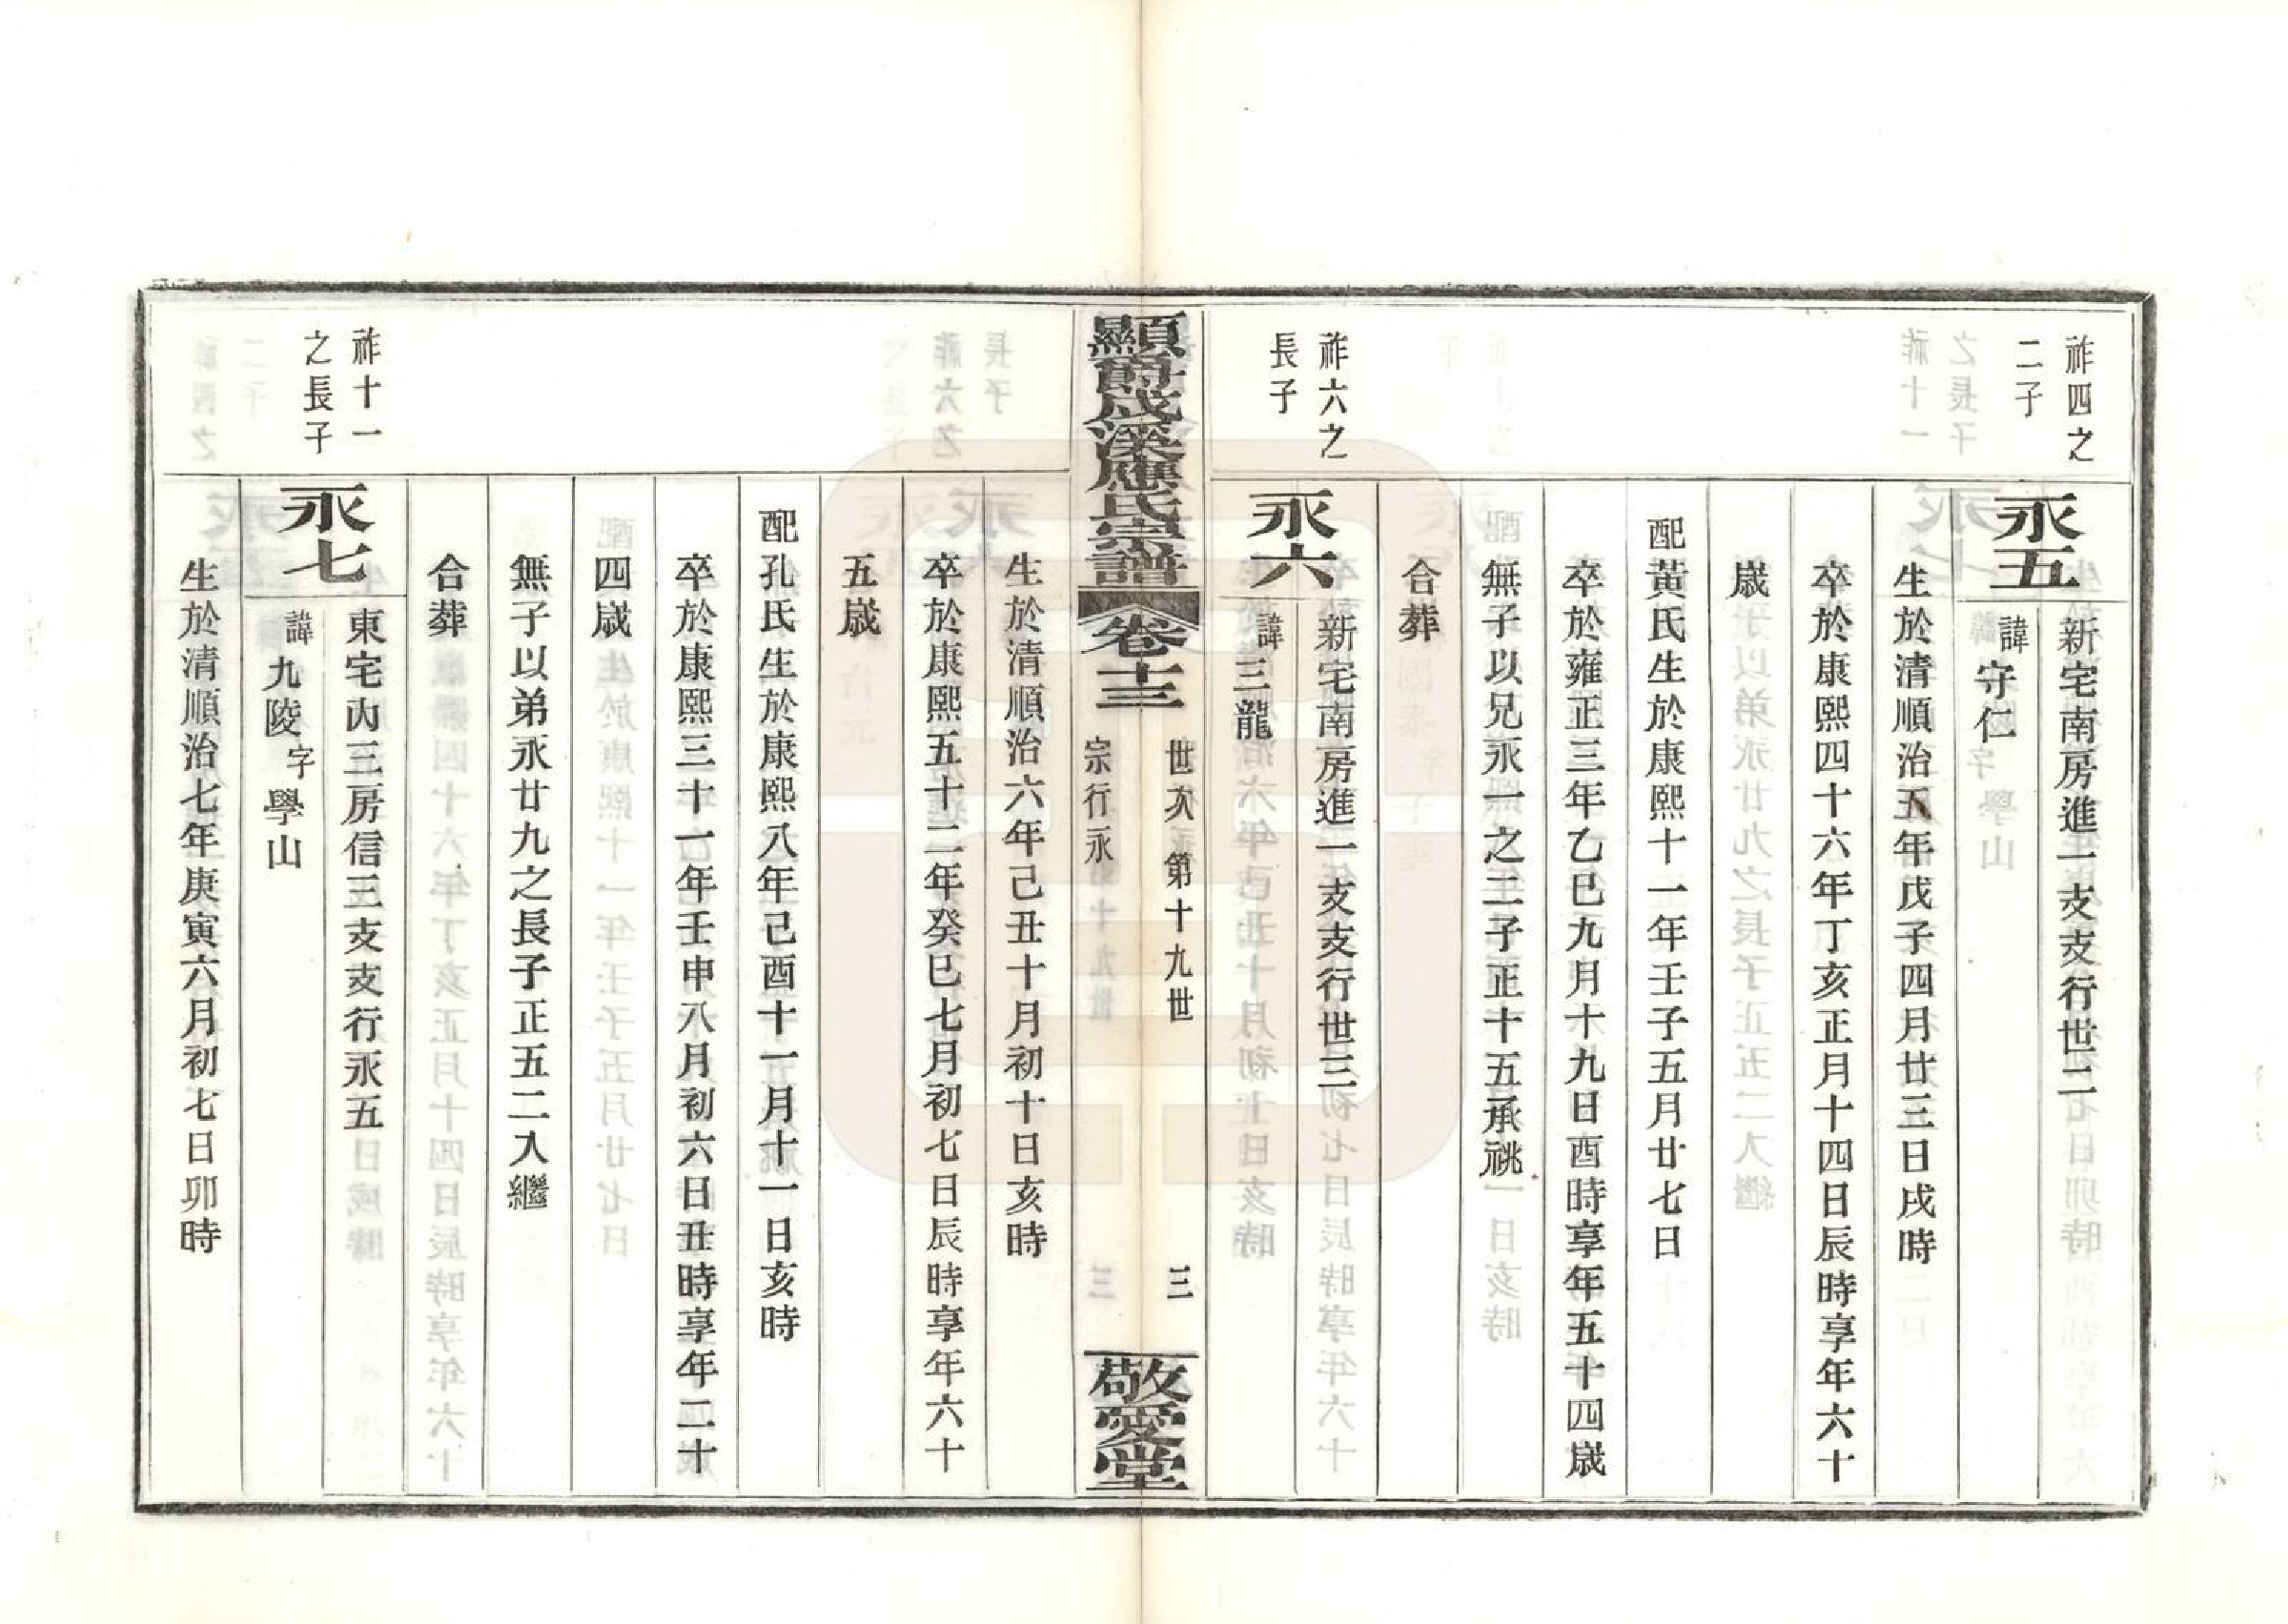 祚四之
二子
永五
新宅南房進一支支行世二
諱守仁
生於清順治五年戊子四月廿三日戌時
卒於康熙四十六年丁亥正月十四日辰時享年六十
歲
配黃氏生於康熙十一年壬子五月廿七日
卒於雍正三年乙巳九月十九日酉時享年五十四歲
無子以兄永一之二子正十五承祧
合葬
祚六之
長子
永六
新宅南房進一支支行世三
諱三龍
顯爵成溪應氏宗譜
卷十三
世次 第十九世
宗行永
三
敬愛堂
生於清順治六年己丑十月初十日亥時
卒於康熙五十二年癸巳七月初七日辰時享年六十
五歲
配孔氏生於康熙八年己酉十一月十一日亥時
卒於康熙三十一年壬申八月初六日丑時享年二十
四歲
無子以弟永廿九之長子正五二入繼
合葬
祚十一
之長子
永七
東宅內三房信三支支行永五
諱九陵字學山
生於清順治七年庚寅六月初七日卯時